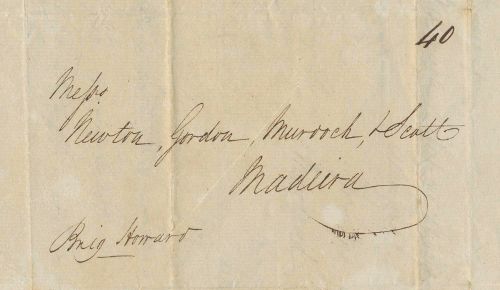 40
Messrs
Newton, Gordon, Murdoch, & Scott
Madeira
Brig Howard